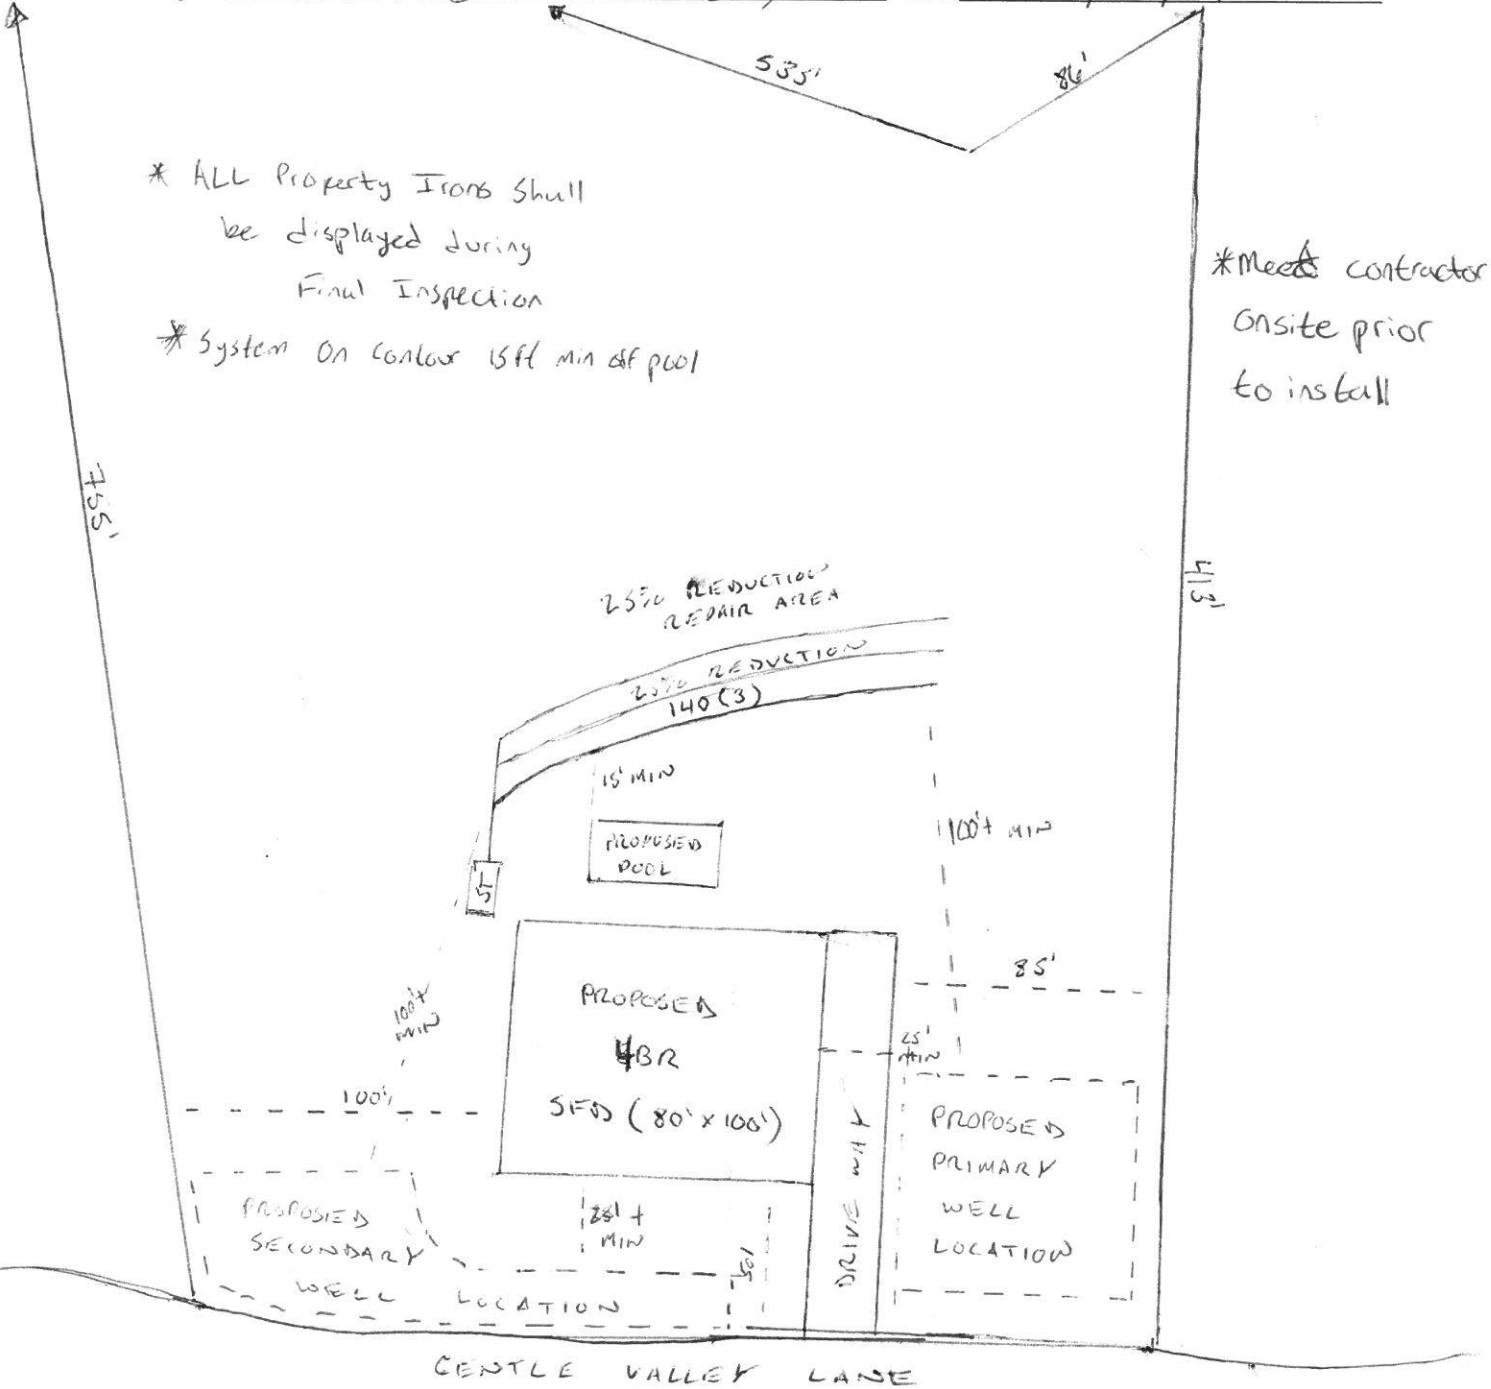 535'
86'
* ALL Property Irons Shall
be displayed during
Final Inspection
* System On Contour 15ft min off pool
* Meet contractor
Onsite prior
to install
755'
413'
25% REDUCTION
REPAIR AREA
25% REDUCTION
140 (3)
15' MIN
PROPOSED
POOL
ST
100'+ MIN
85'
100'+
MIN
PROPOSED
4BR
SFD (80' x 100')
25'
MIN
100'
DRIVE WAY
PROPOSED
PRIMARY
WELL
LOCATION
PROPOSED
SECONDARY
WELL LOCATION
25'+
MIN
105'
CENTLE VALLEY LANE